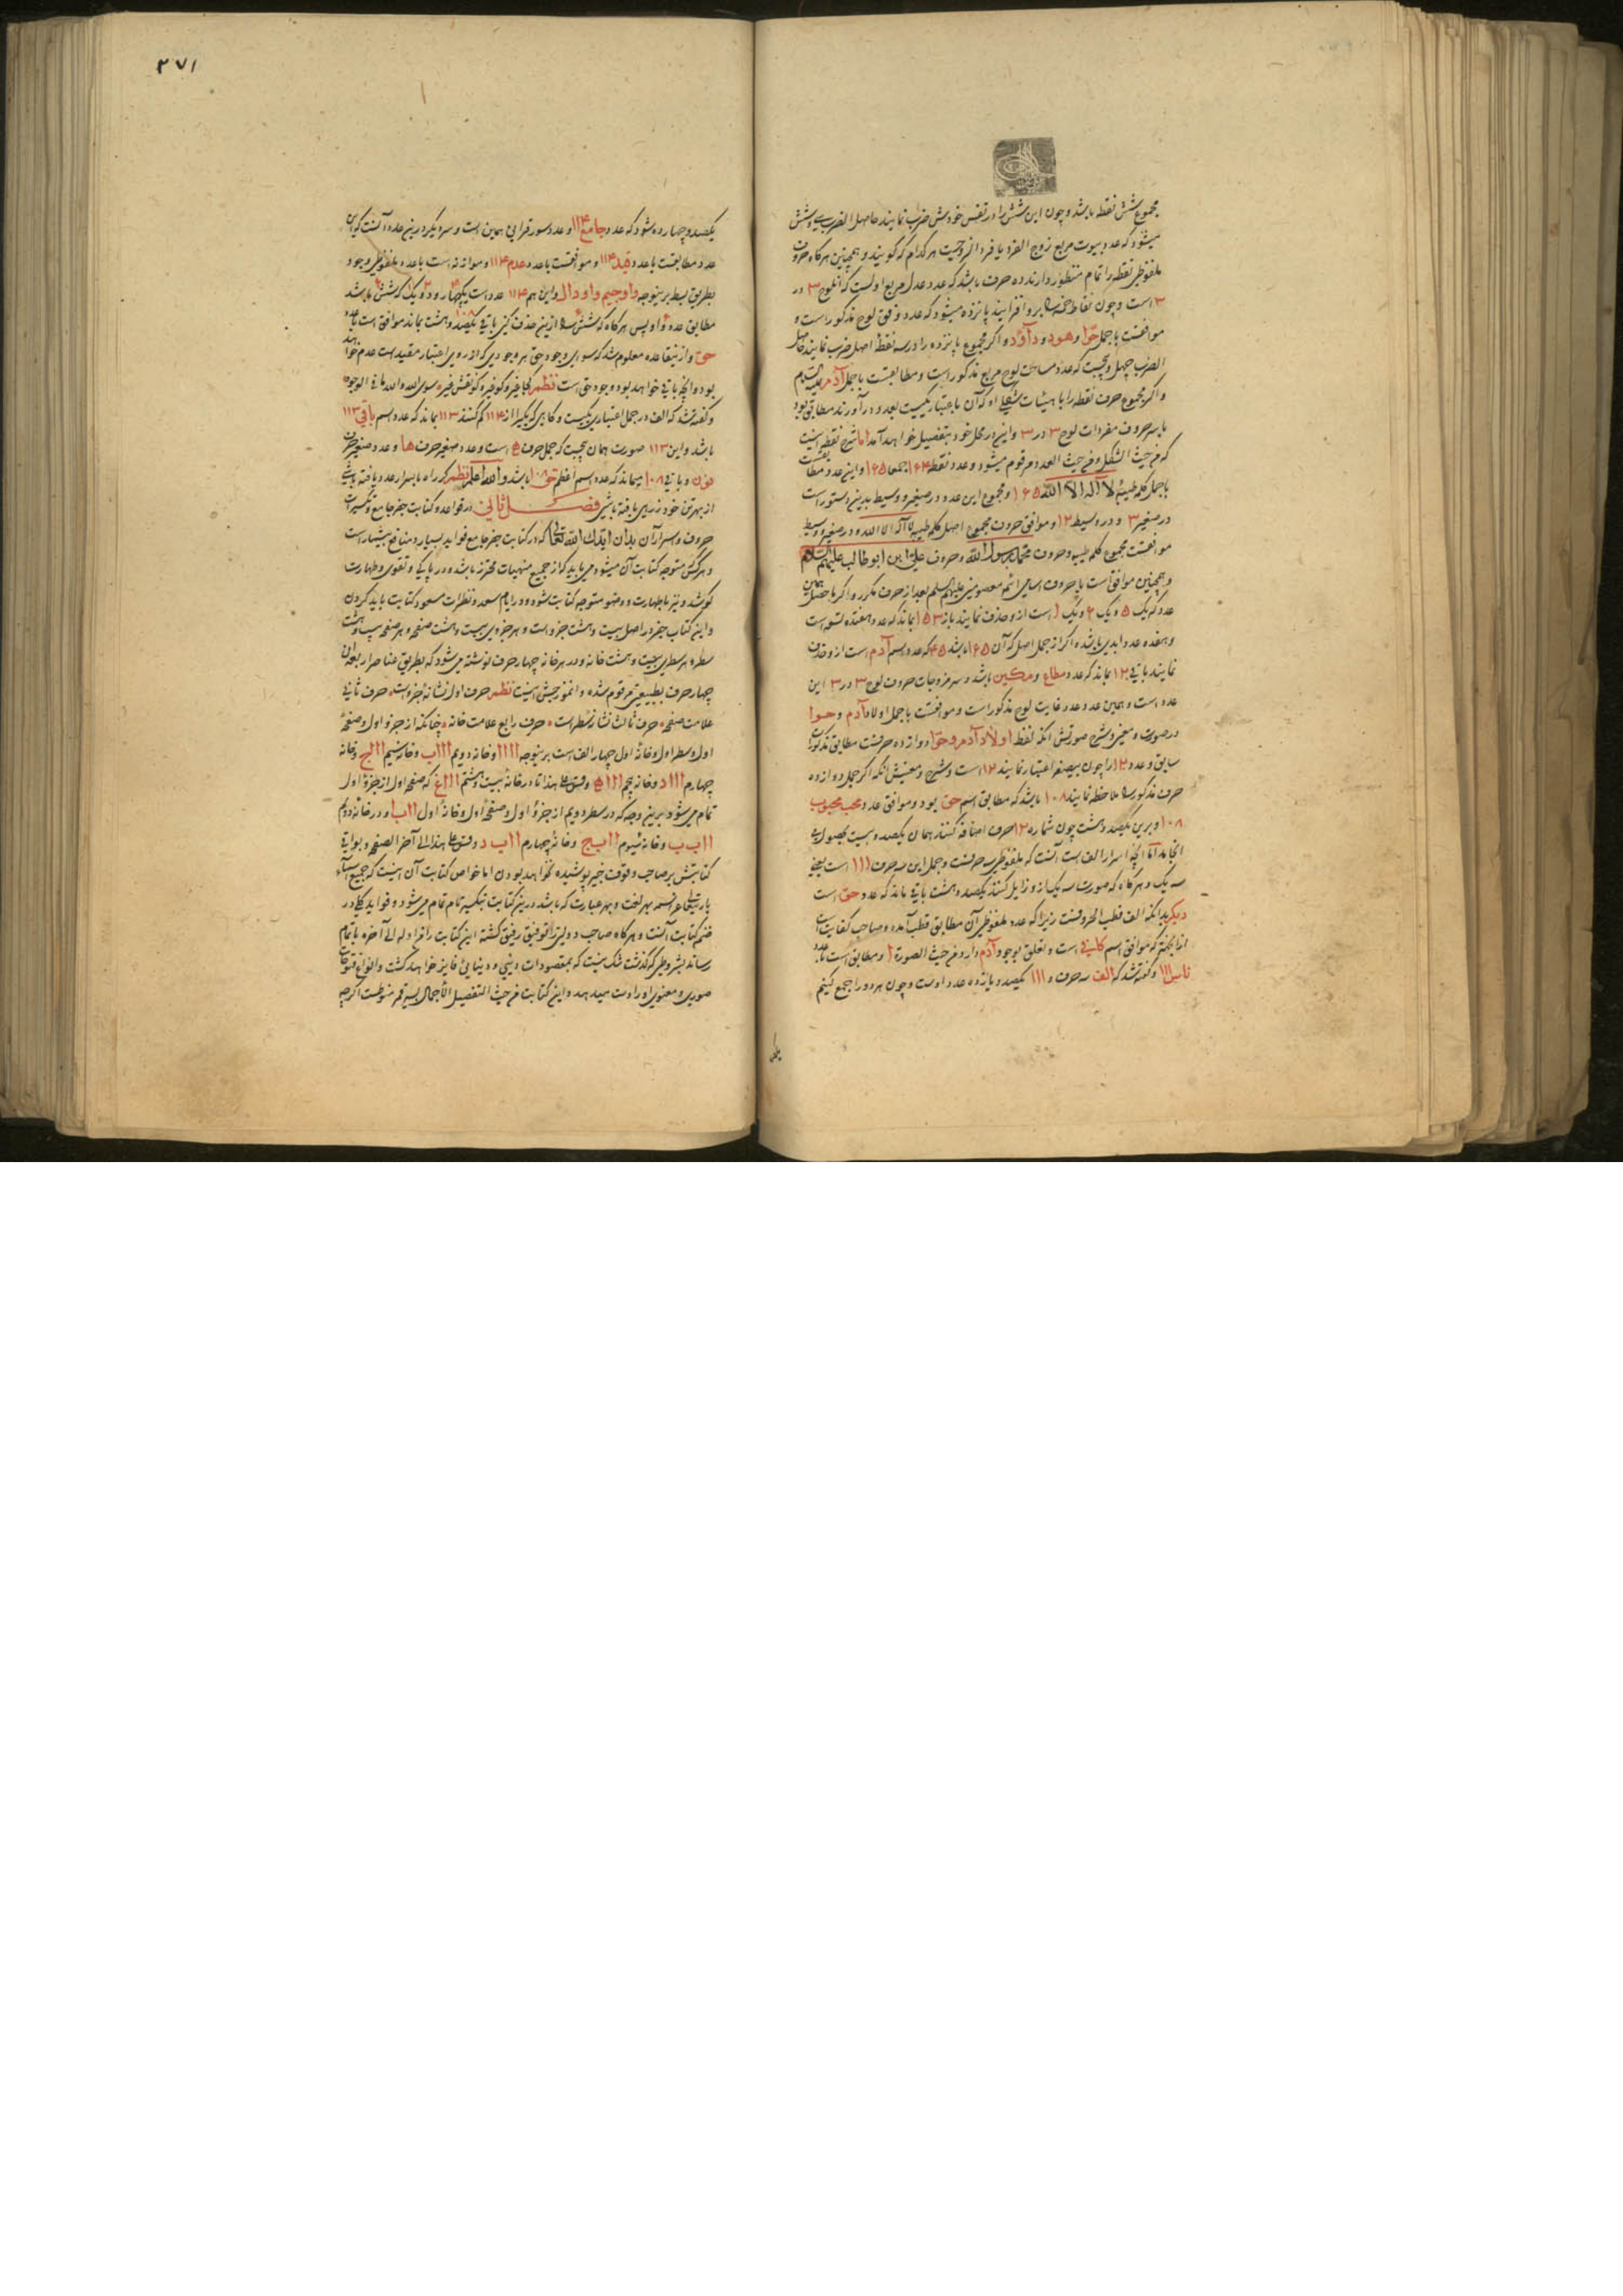 مجموع شش نقطه باشد و چون این شش را در نفس خودش ضرب نمایند حاصل الضرب سی و شش
میشود که عدد بیوت مربع زوج الفرد یا فرد الزوجست هر کدام که گویند و همچنین هر گاه حروف
ملفوظی نقطه را تمام منظور دارند ده حرف باشد که عدد عدل مربع اولست که آن لوح ۳ در
۳ است و چون نقاط خمسه را برو افزایند پانزده میشود که عدد وفق لوح مذکور است و
موافقست با جمل حوا و هود و داود و اگر مجموع پانزده را در سه نقطه اصل ضرب نمایند حاصل
الضرب چهل و پنجست که عدد مساحت لوح مربع مذکور است و مطابقست با جمل آدم علیه السلام
و اگر مجموع حرف نقطه را با هیئات شکلی او که آن باعتبار یکیست بعدد در آورند مطابق بود
با سر حروف مفردات لوح ۳ در ۳ و این در محل خود بتفصیل خواهد آمد اما شرح نقطه اینست
که من حیث الشکل و من حیث العدد مرقوم میشود و عدد نقطه ۱۶۴ جمعا ۱۶۵ و این عدد مطابقست
با جمل کلمه طیبه لا اله الا الله ۱۶۵ و مجموع این عدد در صغیر و وسیط بدین دستور است
در صغیر ۳ و در وسیط ۱۲ و موافق حروف مجموع اصل کلمه طیبه لا اله الا الله و در صغیر و وسیط
موافقست مجموع کلمه طیبه و حروف محمد رسول الله و حروف علی ابن ابو طالب علیهم السلام
و همچنین موافق است با حروف اسامی ائمه معصومین علیهم السلم بعد از حرف مکرر و اگر با حصل همین
عدد که یک ۵ و یک ۶ و یک ۱ است ازو حذف نمایند باز ۱۵۳ بماند که عدد هفده تسعه است
و هفده عدد ابدی باشد و اگر از جمل اصل که آن ۱۶۵ باشد ۴۵ که عدد اسم آدم است ازو حذف
نمایند باقی ۱۲ بماند که عدد مطاع و مکین باشد و سر مزوجات حروف لوح ۳ در ۳ این
عدد است و همین عدد عدد غایت لوح مذکور است و موافقست با جمل اولاد آدم و حوا
در صورت و معنی و شرح صورتش آنکه لفظ اولاد آدم و حوا دوازده حرفست مطابق مذکورات
سابق و عدد ۱۲ را چون بصغر اعتبار نمایند ۱۲ است و شرح معنیش آنکه اگر جمل دوازده
حرف مذکور را ملاحظه نمایند ۱۰۸ باشد که مطابق اسم حق بود و موافق عدد محب محبوب
۱۰۸ و برین یکصد و هشت چون شماره ۱۲ حرف اضافه کنند همان یکصد و بیست بحصول می
انجامد اما آنچه اسرار الف است آنست که ملفوظی سه حرفست و جمل این سه حرف ۱۱۱ است یعنی
سه یک و هر گاه که صورت سه یک ازو زایل کنند یکصد و هشت باقی ماند که عدد حق است
دیگر بدانکه الف قطب الحروفست زیرا که عدد ملفوظی آن مطابق قطب آمده و صاحب کفایت است
از آنجهة که موافق اسم کافی است و تعلق بوجود آدم دارد من حیث الصورة ا و مطابق است با عدد
ناس ۱۱۱ و گفته شد که الف سه حرف و ۱۱۱ یکصد و یازده عدد اوست و چون هر دو را جمع کنیم
یکصد
۳۷۱
یکصد و چهارده شود که عدد جامع ۱۱۴ و عدد سور قرانی همین است و سر دیگر درین عدد آنست که این
عدد مطابقست با عدد قید ۱۱۴ و موافقست با عدد عدم ۱۱۴ و موازنه است با عدد ملفوظی وجود
بطریق بسط برینوجه واو جیم واو دال و این هم ۱۱۴ عدد است یک چهار و دو یک که شش باشد
مطابق عدد واو پس هر گاه که شش را ازین حذف کنی باقی یکصد و هشت بماند موافق است با عدد
حق و ازینقاعده معلوم شد که سوای وجود حق هر وجودی که از روی اعتبار مقیدست عدم خواهد
بود و آنچه باقی خواهد بود وجود حق است نظم کجا غیر و کو غیر و کو نقش غیر سوی الله والله ما فی الوجود
و گفته شد که الف در جمل اعتباری یکیست و گاهی که یکی را از ۱۱۴ کم کنند ۱۱۳ بماند که عدد اسم باقی ۱۱۳
باشد و این ۱۱۳ صورت همان پنجست که جمل حرف ه است و عدد صغیر حرف ها و عدد صغیر حرف
نون و باقی ۱۰۸ بماند که عدد اسم اعظم حق ۱۰۸ باشد والله اعلم نظم گر راه باسرار عدد یافته باشی
از بهر تن خود زرهی یافته باشی فصل ثانی در قواعد و کتابت جفر جامع و تکسیرات
حروف و اسرار آن بدان ایدک الله تعالی که در کتابت جفر جامع فواید بسیار و منافع بیشمار است
و هر کس متوجه کتابت آن میشود می باید که از جمیع منهیات محترز باشد و در پاکی و تقوی و طهارت
کوشد و نیز با طهارت و وضو متوجه کتابت شود و در ایام سعد و نظرات مسعود کتابت باید کردن
و این کتاب جفر در اصل بیست و هشت جزو است و هر جزوی بیست و هشت صفحه و هر صفحه بیست و هشت
سطر و هر سطری بیست و هشت خانه و در هر خانه چهار حرف نوشته می شود که بطریق عناصر اربعه این
چهار حرف بطبیعتی مرقوم شده و انموزجش اینست نظم حرف اول نشانه جزو است حرف ثانی
علامت صفحه حرف ثالث نشانه سطر است حرف رابع علامت خانه چنانکه از جزو اول و صفحه
اول و سطر اول و خانه اول چهار الف است برینوجه اااا و خانه دویم اااب و خانه سیم اااج و خانه
چهارم اااد و خانه پنجم اااه و قس علی هذا تا در خانه بیست و هشتم اااغ که صفحه اول از جزو اول
تمام می شود برین وجه که در سطر دویم از جزو اول و صفحه اول و خانه اول ااب ا و در خانه دوم
ااب ب و خانه سیوم ااب ج و خانه چهارم ااب د و قس علی هذا الی آخر الصفحه و بواقی
کتابتش بر صاحب وقوف خبیر پوشیده نخواهد بودن اما خواص کتابت آن اینست که جمیع اسماء
باری تعالی عز اسمه بهر لغت و بهر عبارت که باشد درین کتابت بتکسیر تام تمام می شود و فواید کلی در
ضمن کتابت آنست و هر گاه صاحب دولتی را توفیق رفیق گشته این کتابت را من اوله الی آخره باتمام
رساند بشروطی که گذشت شک نیست که بمقصودات دینی و دنیائی فایز خواهد گشت و انواع فتوحات
صوری و معنوی او را دست میدهد و این کتابت من حیث التفصیل الاجمال بسه قسم منوطست اگر چه